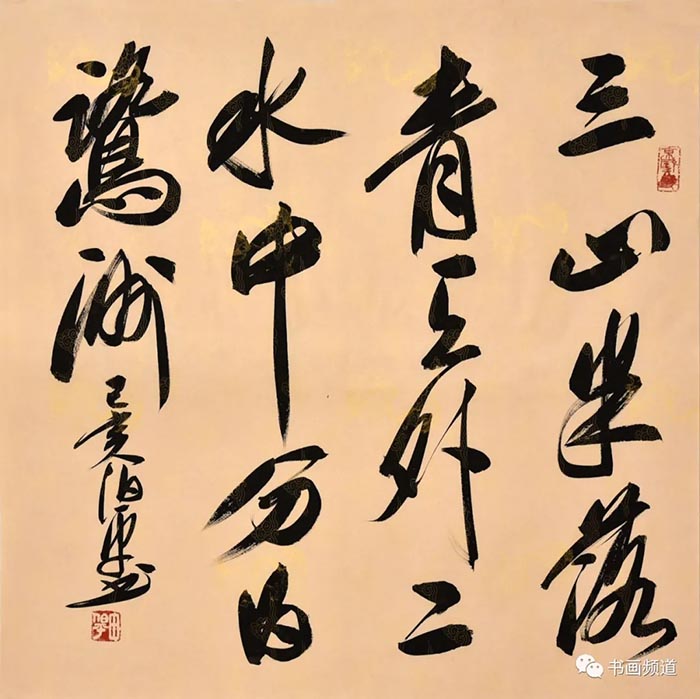 三山半落
青天外二
水中分白
鷺洲
己亥伯平书
书画频道